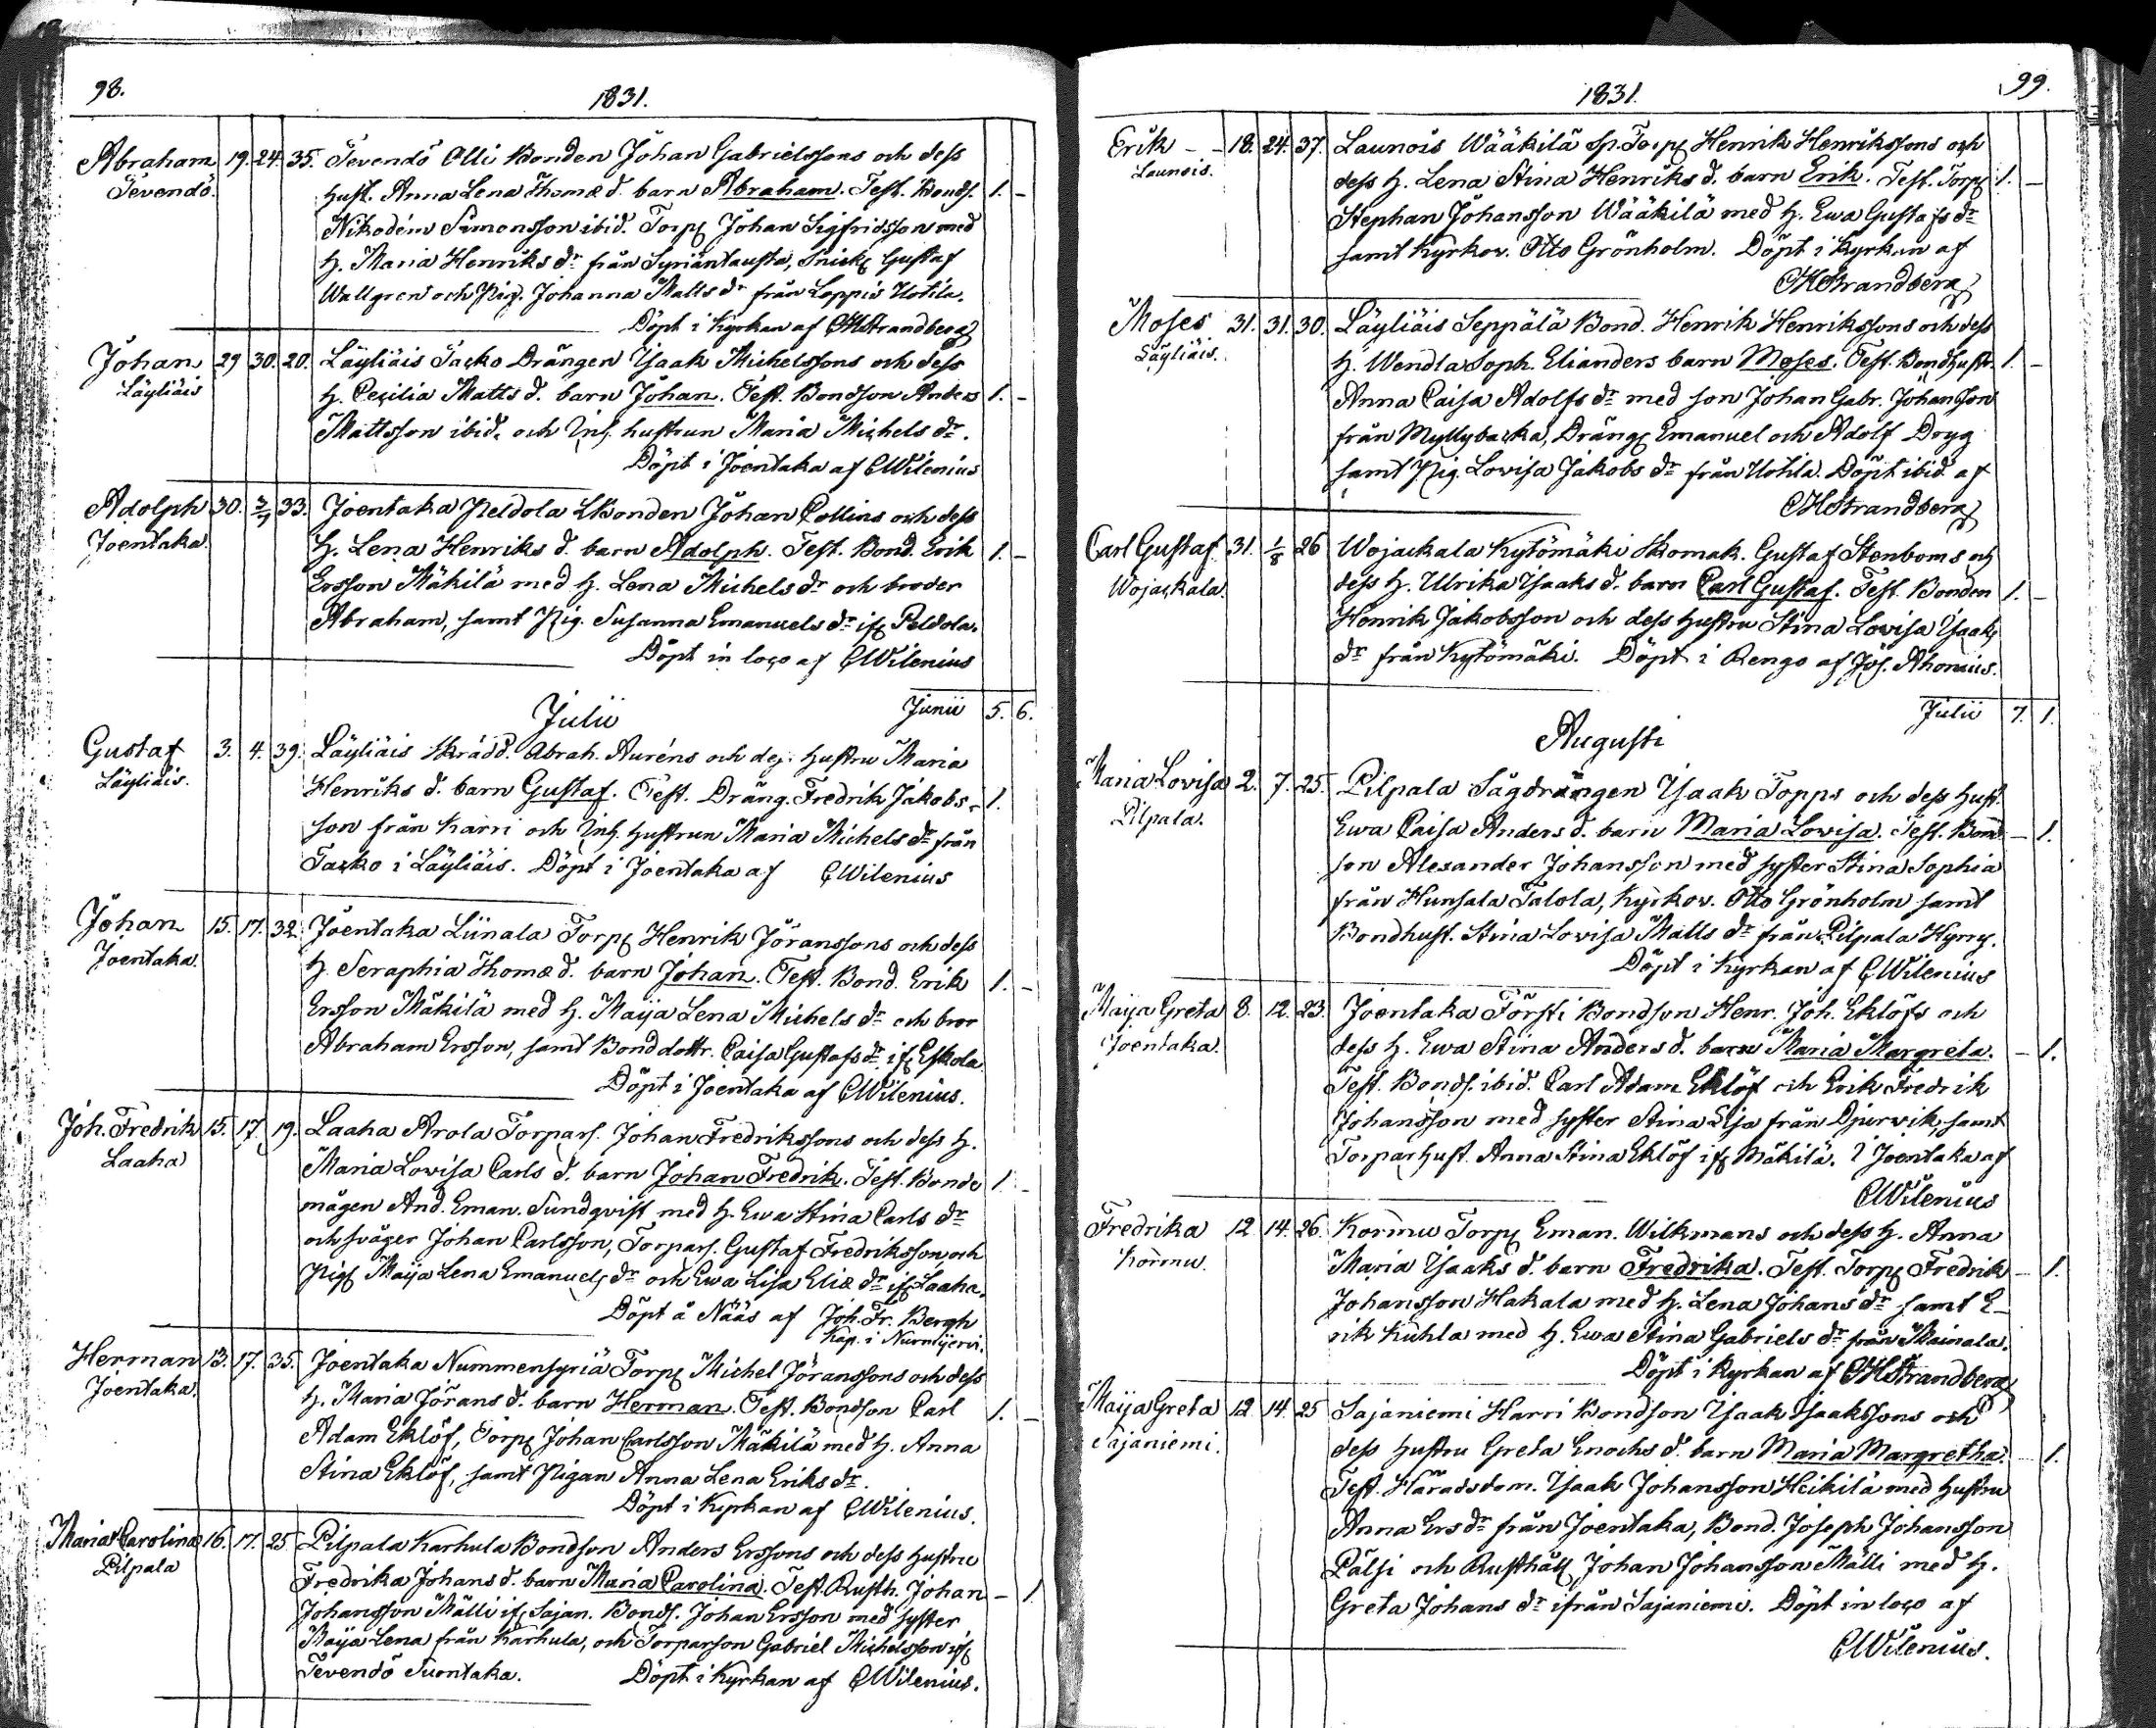 98.
1831.
Abraham 19. 24. 35. Tevendö Olli Bonden Johan Gabrielssons och dess
Tevendö. hust. Anna Lena Thomæ d. barn Abraham. Test. Bonds. 1. -
Nikodém Simonsson ibid. Torp. Johan Sigfridsson med
h. Maria Henriks dr från Syriäntausta, Snick. Gustaf
Wallgren och Pig. Johanna Matts dr från Loppis Uotila.
Döpt i Kyrkan af CHStrandberg
Johan 29 30. 20. Läyliäis Jacko Drängen Isaak Michelssons och dess
Läyliäis h. Cecilia Matts d. barn Johan. Test. Bondson Anders 1. -
Mattsson ibid. och Inh. hustrun Maria Michels dr.
Döpt i Joentaka af CWilenius
Adolph 30. 3/7 33. Joentaka Peldola LBonden Johan Collins och dess
Joentaka. h. Lena Henriks d. barn Adolph. Test. Bond. Erik 1. -
Ersson Mäkilä med h. Lena Michels dr och broder
Abraham, samt Pig. Susanna Emanuels dr if. Peldola.
Döpt in loco af CWilenius
Julii Junii 5. 6.
Gustaf 3. 4. 39. Läyliäis Skrädd. Abrah. Auréns och des. hustru Maria
Läyliäis. Henriks d. barn Gustaf. Test. Dräng. Fredrik Jakobs- 1.
son från Karri och Inh. hustrun Maria Michels dr från
Jacko i Läyliäis. Döpt i Joentaka af CWilenius
Johan 15. 17. 32. Joentaka Liinala Torp. Henrik Jöranssons och dess
Joentaka. h. Seraphia Thomæ d. barn Johan. Test. Bond. Erik 1. -
Ersson Mäkilä med h. Maija Lena Michels dr och bror
Abraham Ersson, samt Bonddottr. Caisa Gustafs dr if. Eskola
Döpt i Joentaka af CWilenius.
Joh. Fredrik 15. 17. 19. Laaha Arola Torpars. Johan Fredrikssons och dess h.
Laaha Maria Lovisa Carls d. barn Johan Fredrik. Test. Bonde 1. -
mågen And. Eman. Sundqvist med h. Ewa Stina Carls dr
och svåger Johan Carlsson, Torpars. Gustaf Fredriksson och
Pig. Maija Lena Emanuels dr och Ewa Lisa Eliæ dr if. Laaha.
Döpt å Nääs af Joh. Fr. Bergh
Kap. i Nurmijervi.
Herman 13. 17. 35. Joentaka Nummensyriä Torp. Michel Jöranssons och dess
Joentaka. h. Maria Jörans d. barn Herman. Test. Bondson Carl 1. -
Adam Eklöf, Torp. Johan Carlsson Mäkilä med h. Anna
Stina Eklöf, samt Pigan Anna Lena Eriks dr.
Döpt i Kyrkan af CWilenius.
Maria Carolina 16. 17. 25 Pilpala Karhula Bondson Anders Erssons och dess hustru
Pilpala Fredrika Johans d. barn Maria Carolina. Test. Rusth. Johan - 1.
Johansson Mälli if. Sajan. Bonds. Johan Ersson med syster
Maija Lena från Karhula, och Torparson Gabriel Michelsson if.
Tevendö Suontaka. Döpt i Kyrkan af CWilenius.
99.
1831.
Erik - - 18. 24. 37. Launois Wääkilä sp. Torp. Henrik Henrikssons och
Launois. dess h. Lena Stina Henriks d. barn Erik. Test. Torp. 1. -
Stephan Johansson Wääkilä med h. Ewa Gustafs dr
samt Kyrkov. Otto Grönholm. Döpt i Kyrkan af
CHStrandberg
Moses 31. 31. 30. Läyliäis Seppälä Bond. Henrik Henrikssons och dess
Läyliäis. h. Wendla Soph. Elianders barn Moses. Test. Bondhustr. 1. -
Anna Caisa Adolfs dr med son Johan Gabr. Johanson
från Myllybacka, Dräng. Emanuel och Adolf Dryg
samt Pig. Lovisa Jakobs dr från Uotila. Döpt ibid af
CHStrandberg
Carl Gustaf 31. 1/8 26 Wojackala Kytömäki Skomak. Gustaf Stenboms och
Wojackala. dess h. Ulrika Isaaks d. barn Carl Gustaf. Test. Bonden 1. -
Henrik Jakobsson och dess hustru Stina Lovisa Isaaks
dr från Kytömäki. Döpt i Rengo af Jos. Ahonius.
Julii 7. 1.
Augusti
Maria Lovisa 2. 7. 25. Pilpala Sågdrängen Isaak Topps och dess hust.
Pilpala. Ewa Caisa Anders d. barn Maria Lovisa. Test. Bond- - 1.
son Alexander Johansson med syster Stina Sophia
från Hunsala Talola, Kyrkov. Otto Grönholm samt
Bondhust. Stina Lovisa Matts dr från Pilpala Hyrry.
Döpt i Kyrkan af CWilenius
Maija Greta 8. 12. 23. Joentaka Försti Bondson Henr. Joh. Eklöfs och
Joentaka. dess h. Ewa Stina Anders d. barn Maria Margreta. - 1.
Test. Bonds. ibid. Carl Adam Eklöf och Erik Fredrik
Johansson med syster Stina Lisa från Djurvik, samt
Torparhust. Anna Stina Eklöf if. Mäkilä. I Joentaka af
CWilenius
Fredrika 12 14. 26. Kormu Torp. Eman. Wilkmans och dess h. Anna
Kormu. Maria Isaaks d. barn Fredrika. Test. Torp. Fredrik - 1.
Johansson Hakala med h. Lena Johans dr samt E-
rik Kuhla med h. Ewa Stina Gabriels dr från Mainala.
Döpt i Kyrkan af CHStrandberg
Maija Greta 12 14. 25 Sajaniemi Harri Bondson Isaak Isaaksons och
Sajaniemi. dess hustru Greta Enochs d. barn Maria Margretha. - 1.
Test. Häradsdom. Isaak Johansson Heikilä med hustru
Anna Ers dr från Joentaka, Bond. Joseph Johansson
Pälsi och Rusthåll. Johan Johansson Mälli med h.
Greta Johans dr ifrån Sajaniemi. Döpt in loco af
CWilenius.